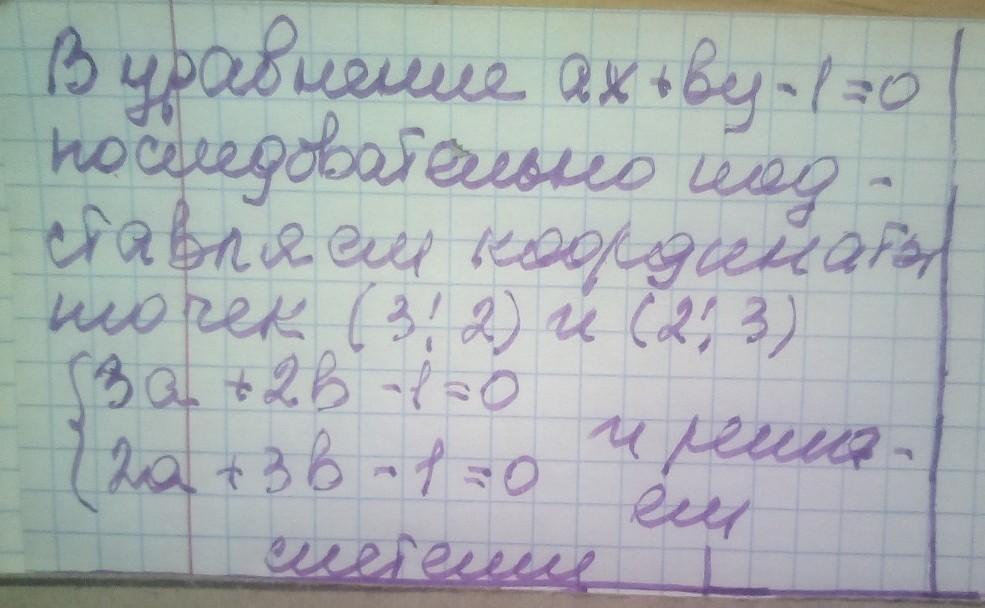 В уравнение ax+by-1=0
последовательно под-
ставляем координаты
точек (3; 2) и (2; 3)
3a + 2b - 1 = 0
и реша-
2a + 3b - 1 = 0
ем
системы